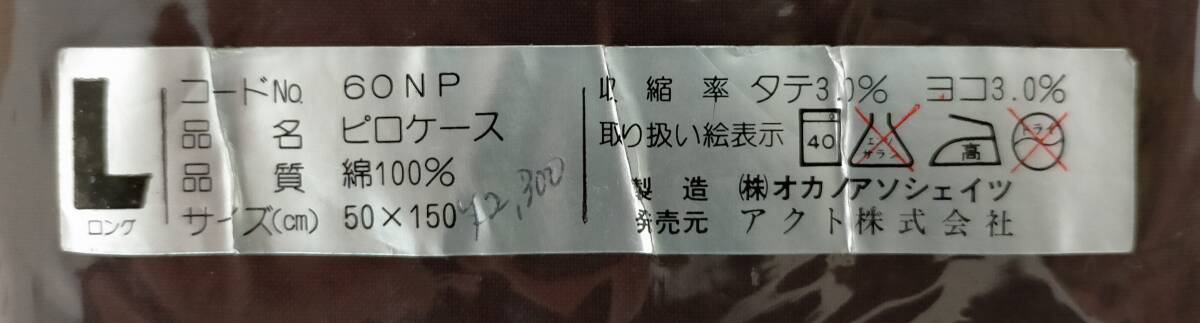 L
ロング
コードNo. 60NP
品名 ピロケース
品質 綿100%
サイズ(cm) 50×150
¥2,300
収縮率 タテ3.0% ヨコ3.0%
取り扱い絵表示 40 エンソサラシ 高 ドライ
製造 (株)オカノアソシェイツ
発売元 アクト株式会社